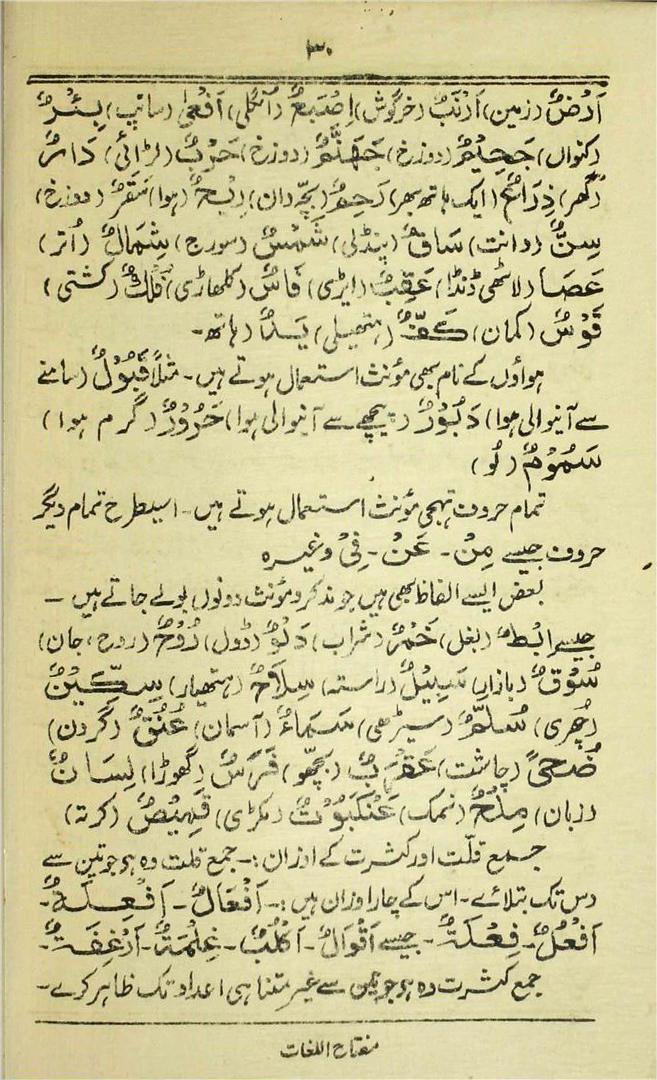 ۳۰
اَرْضٌ (زمین) اَرْنَبٌ (خرگوش) اِصْبَعٌ (اُنگلی) اَفْعٰی (سانپ) بِئْرٌ
(کنواں) جَحِیْمٌ (دوزخ) جَهَنَّمٌ (دوزخ) حَرْبٌ (لڑائی) دَارٌ
(گھر) ذِرَاعٌ (ایک ہاتھ بھر) رَحِمٌ (بچّہ دان) رِیْحٌ (ہوا) سَقَرٌ (دوزخ)
سِنٌّ (دانت) سَاقٌ (پنڈلی) شَمْسٌ (سورج) شِمَالٌ (اُتر)
عَصَا (لاٹھی ڈنڈا) عَقِبٌ (ایڑی) فَاسٌ (کلھاڑی) فُلْكٌ (کشتی)
قَوْسٌ (کمان) کَفٌّ (ہتھیلی) یَدٌ (ہاتھ۔
ہواؤں کے نام بھی مؤنث استعمال ہوتے ہیں۔ مثلاً قَبُوْلٌ (سامنے
سے آنیوالی ہوا) دَبُوْرٌ (پیچھے سے آنیوالی ہوا) حَرُوْرٌ (گرم ہوا)
سَمُوْمٌ (لُو)
تمام حروف تہجی مؤنث استعمال ہوتے ہیں۔ اسیطرح تمام دیگر
حروف جیسے مِنْ۔ عَنْ۔ فِیْ وغیرہ
بعض ایسے الفاظ بھی ہیں جو مذکر و مؤنث دونوں بولے جاتے ہیں ۔
جیسے اِبْطٌ (بغل) خَمْرٌ (شراب) دَلْوٌ (ڈول) رُوْحٌ (روح، جان)
سُوْقٌ (بازار) سَبِیْلٌ (راستہ) سِلَاحٌ (ہتھیار) سِکِّیْنٌ
(چھری) سُلَّمٌ (سیڑھی) سَمَاءٌ (آسمان) عُنُقٌ (گردن)
ضُحیً (چاشت) عَقْرَبٌ (بچھّو) فَرَسٌ (گھوڑا) لِسَانٌ
(زبان) مِلْحٌ (نمک) عَنْکَبُوْتٌ (مکڑی) قَمِیْصٌ (کرتہ)
جمع قلّت اور کثرت کے اوزان :- جمع قلت وہ ہے جو تین سے
دس تک بتلائے۔ اس کے چار اوزان ہیں :- اَفْعَالٌ۔ اَفْعِلَةٌ۔
اَفْعُلٌ۔ فِعْلَةٌ۔ جیسے اَقْوَالٌ۔ اَکْلُبٌ۔ غِلْمَةٌ۔ اَرْغِفَةٌ۔
جمع کثرت وہ ہے جو تین سے غیر متناہی اعداد تک ظاہر کرے۔
مفتاح اللغات